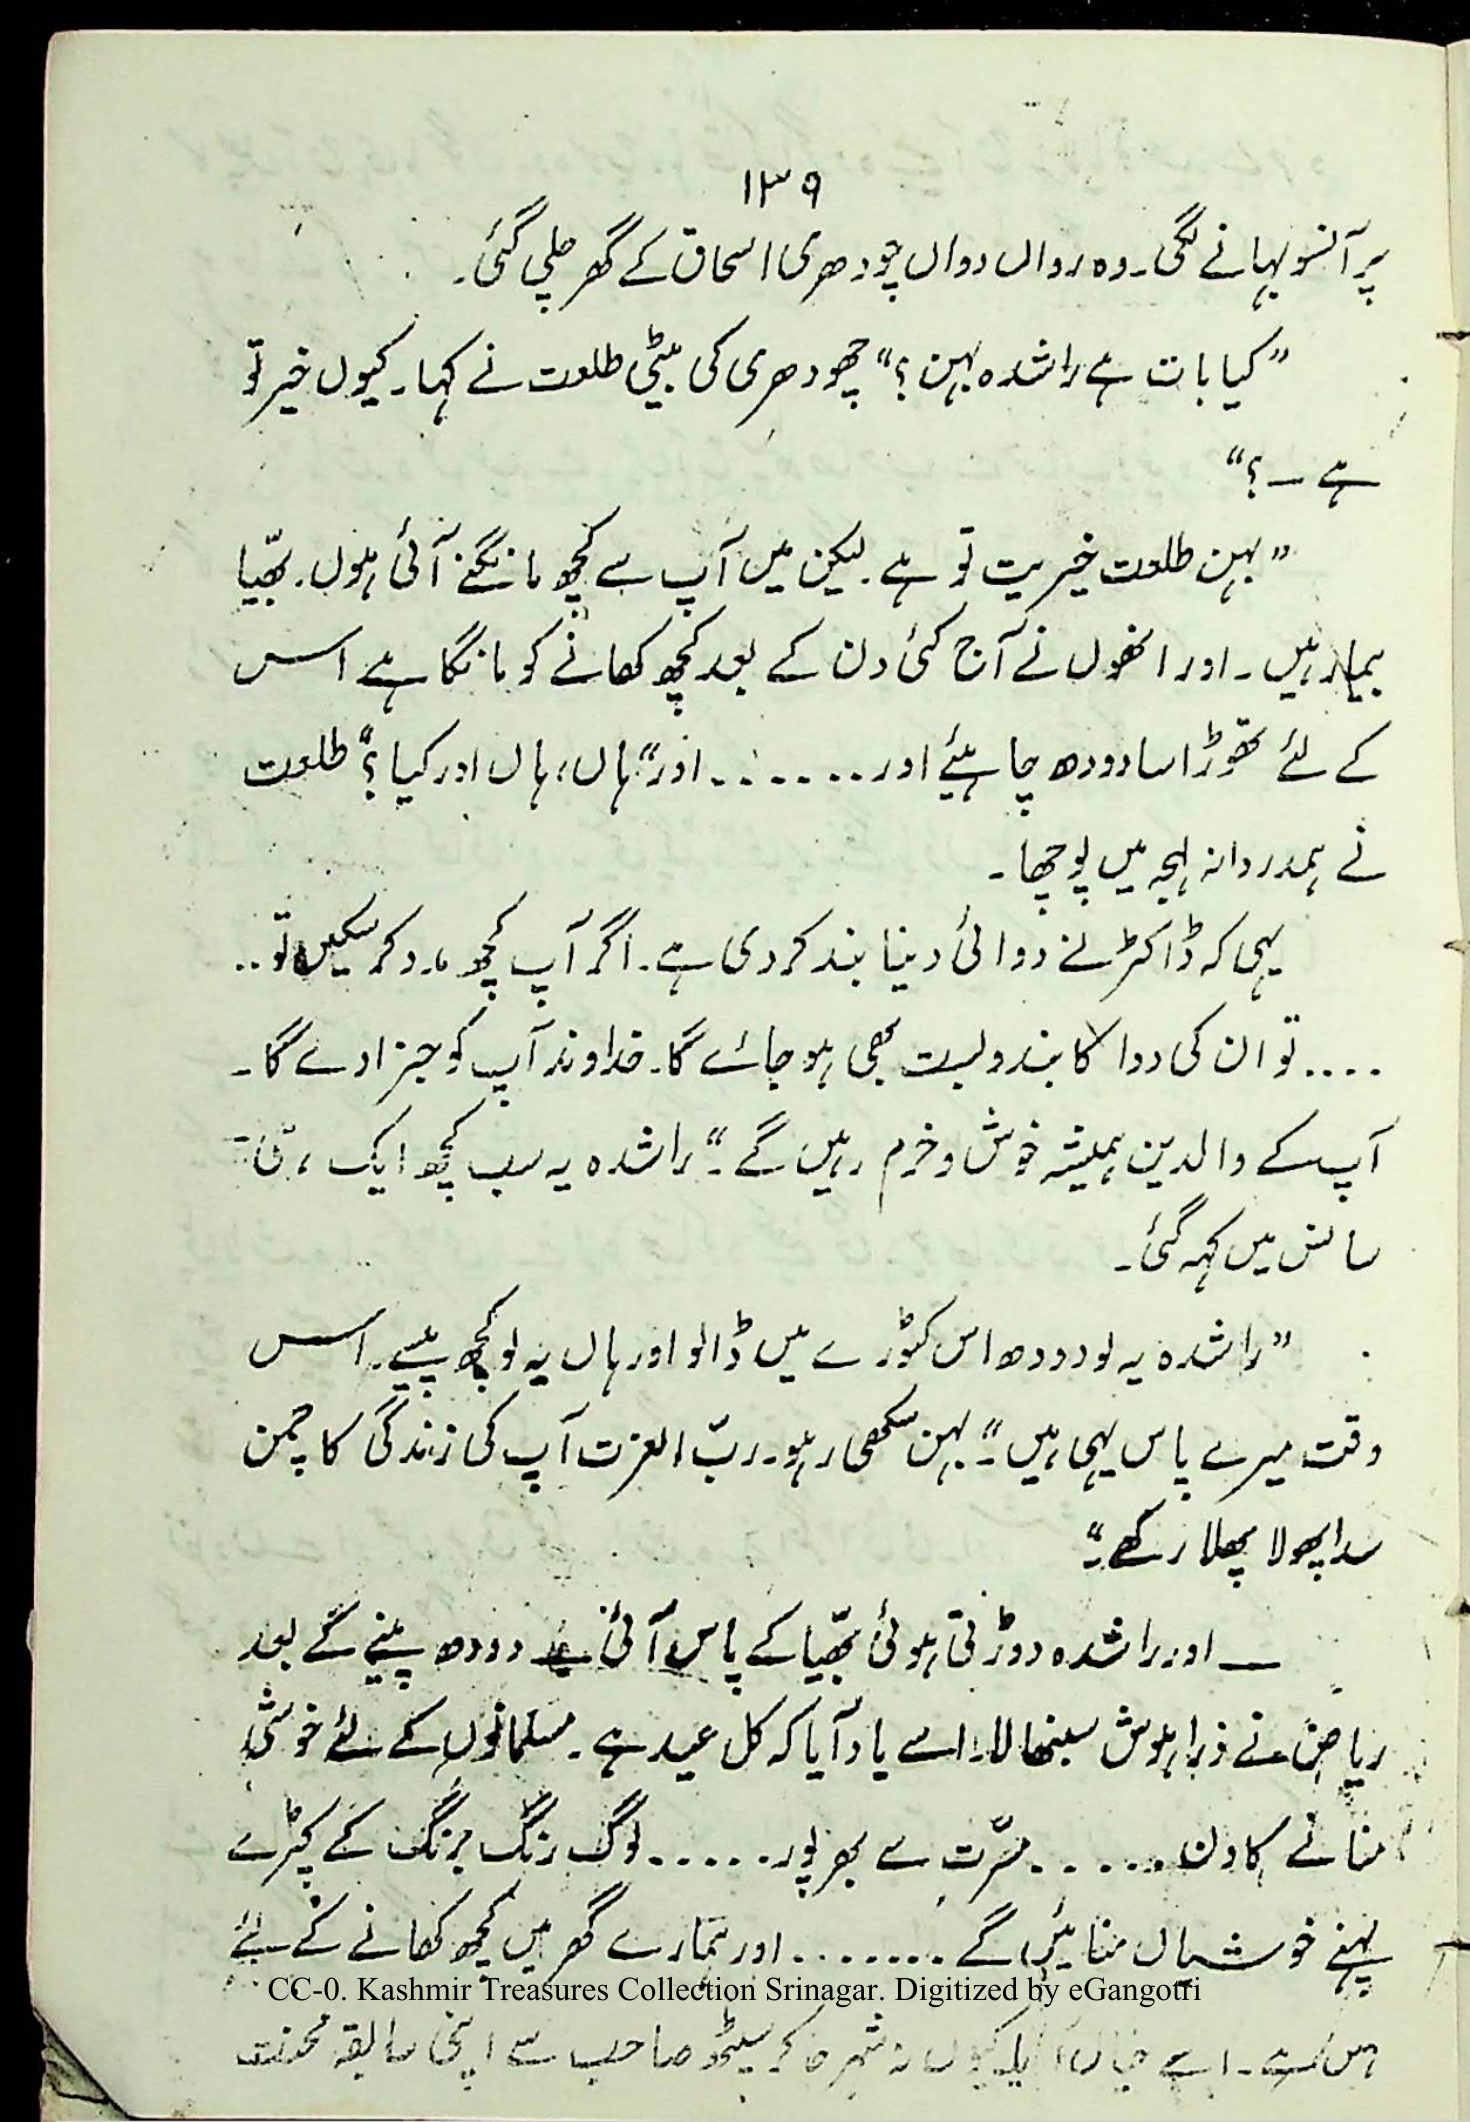 ۱۳۹
پر آنسو بہانے لگی۔ وہ رواں دواں چودھری اسحاق کے گھر چلی گئی۔
”کیا بات ہے راشدہ بہن؟“ چھودھری کی بیٹی طلعت نے کہا۔ کیوں خیر تو
ہے ـ ؟“
”بہن طلعت خیریت تو ہے۔ لیکن میں آپ سے کچھ مانگنے آئی ہوں۔ بھّیا
بیمار ہیں۔ اور انھوں نے آج کئی دن کے بعد کچھ کھانے کو مانگا ہے اس
کے لئے تھوڑا سا دودھ چاہیئے اور ۔۔۔۔۔۔ اور“ ”ہاں، ہاں اور کیا؟“ طلعت
نے ہمدردانہ لہجہ میں پوچھا۔
یہی کہ ڈاکٹر نے دوائی دینا بند کر دی ہے۔ اگر آپ کچھ مدد کر سکیں تو ۔۔
۔۔۔۔ تو ان کی دوا کا بندوبست بھی ہو جائے گا۔ خداوند آپ کو جزا دے گا۔
آپ کے والدین ہمیشہ خوش و خرم رہیں گے۔“ راشدہ یہ سب کچھ ایک ہی
سانس میں کہہ گئی۔
”راشدہ یہ لو دودھ اس کٹورے میں ڈالو اور ہاں یہ لو کچھ پیسے۔ اس
وقت میرے پاس یہی ہیں۔“ ”بہن سکھی رہو۔ ربّ العزت آپ کی زندگی کا چمن
سدا پھولا پھلا رکھے۔“
ـــ اور راشدہ دوڑتی ہوئی بھّیا کے پاس آئی۔ دودھ پینے کے بعد
ریاض نے ذرا ہوش سنبھالا۔ اسے یاد آیا کہ کل عید ہے۔ مسلمانوں کے لئے خوشی
منانے کا دن ۔۔۔۔۔ مسرّت سے بھر پور ۔۔۔۔۔ لوگ رنگ برنگ کے کپڑے
پہنے خوشیاں منائیں گے ۔۔۔۔۔۔۔ اور ہمارے گھر میں کچھ کھانے کے لئے
CC-0. Kashmir Treasures Collection Srinagar. Digitized by eGangotri
اسے خیال آیا کہ کیوں نہ شہر جا کر سیٹھ صاحب سے اپنی سابقہ محنت